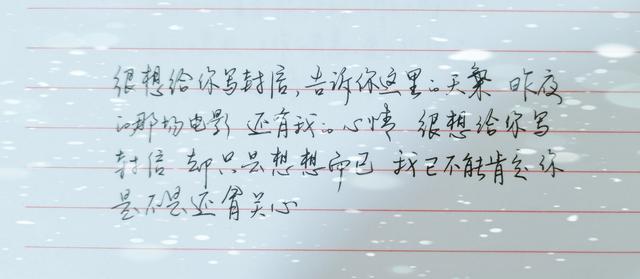 很想给你写封信，告诉你这里的天气 昨夜
的那场电影 还有我的心情 很想给你写
封信 却只是想想而已 我已不能肯定你
是不是还有关心